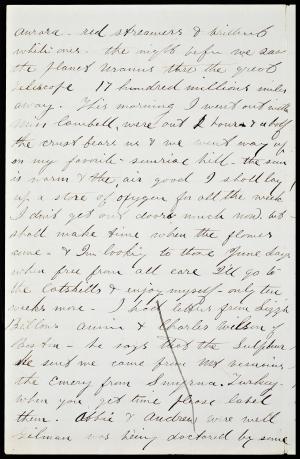 aurora - red streamers & brilliant
white ones - the night before we saw
the planet Uranus thro the great
telescope 17 hundred millions miles
away. This morning I went out with
Miss Cambell, were out 2 hours & a half
the crust bears us & we went way up
on my favorite - sunrise hill - the sun
is warm & the air good I shall lay
up a store of oxygen for all the week
I don't get out doors much now. but
shall make time when the flowers
come - & I'm looking to those June days
when free from all care I'll go to
the Catskills & enjoy myself - only ten
weeks more - I had letters from Lizzie
Annie & Charles Wilson of
Boston - he says that the Sulphur
he sent me came from Mt Vesuvius
the Emery from Smyrna. Turkey.
when you get time please label
them. Abbie & Andrew were well
Gilman was being doctored by some